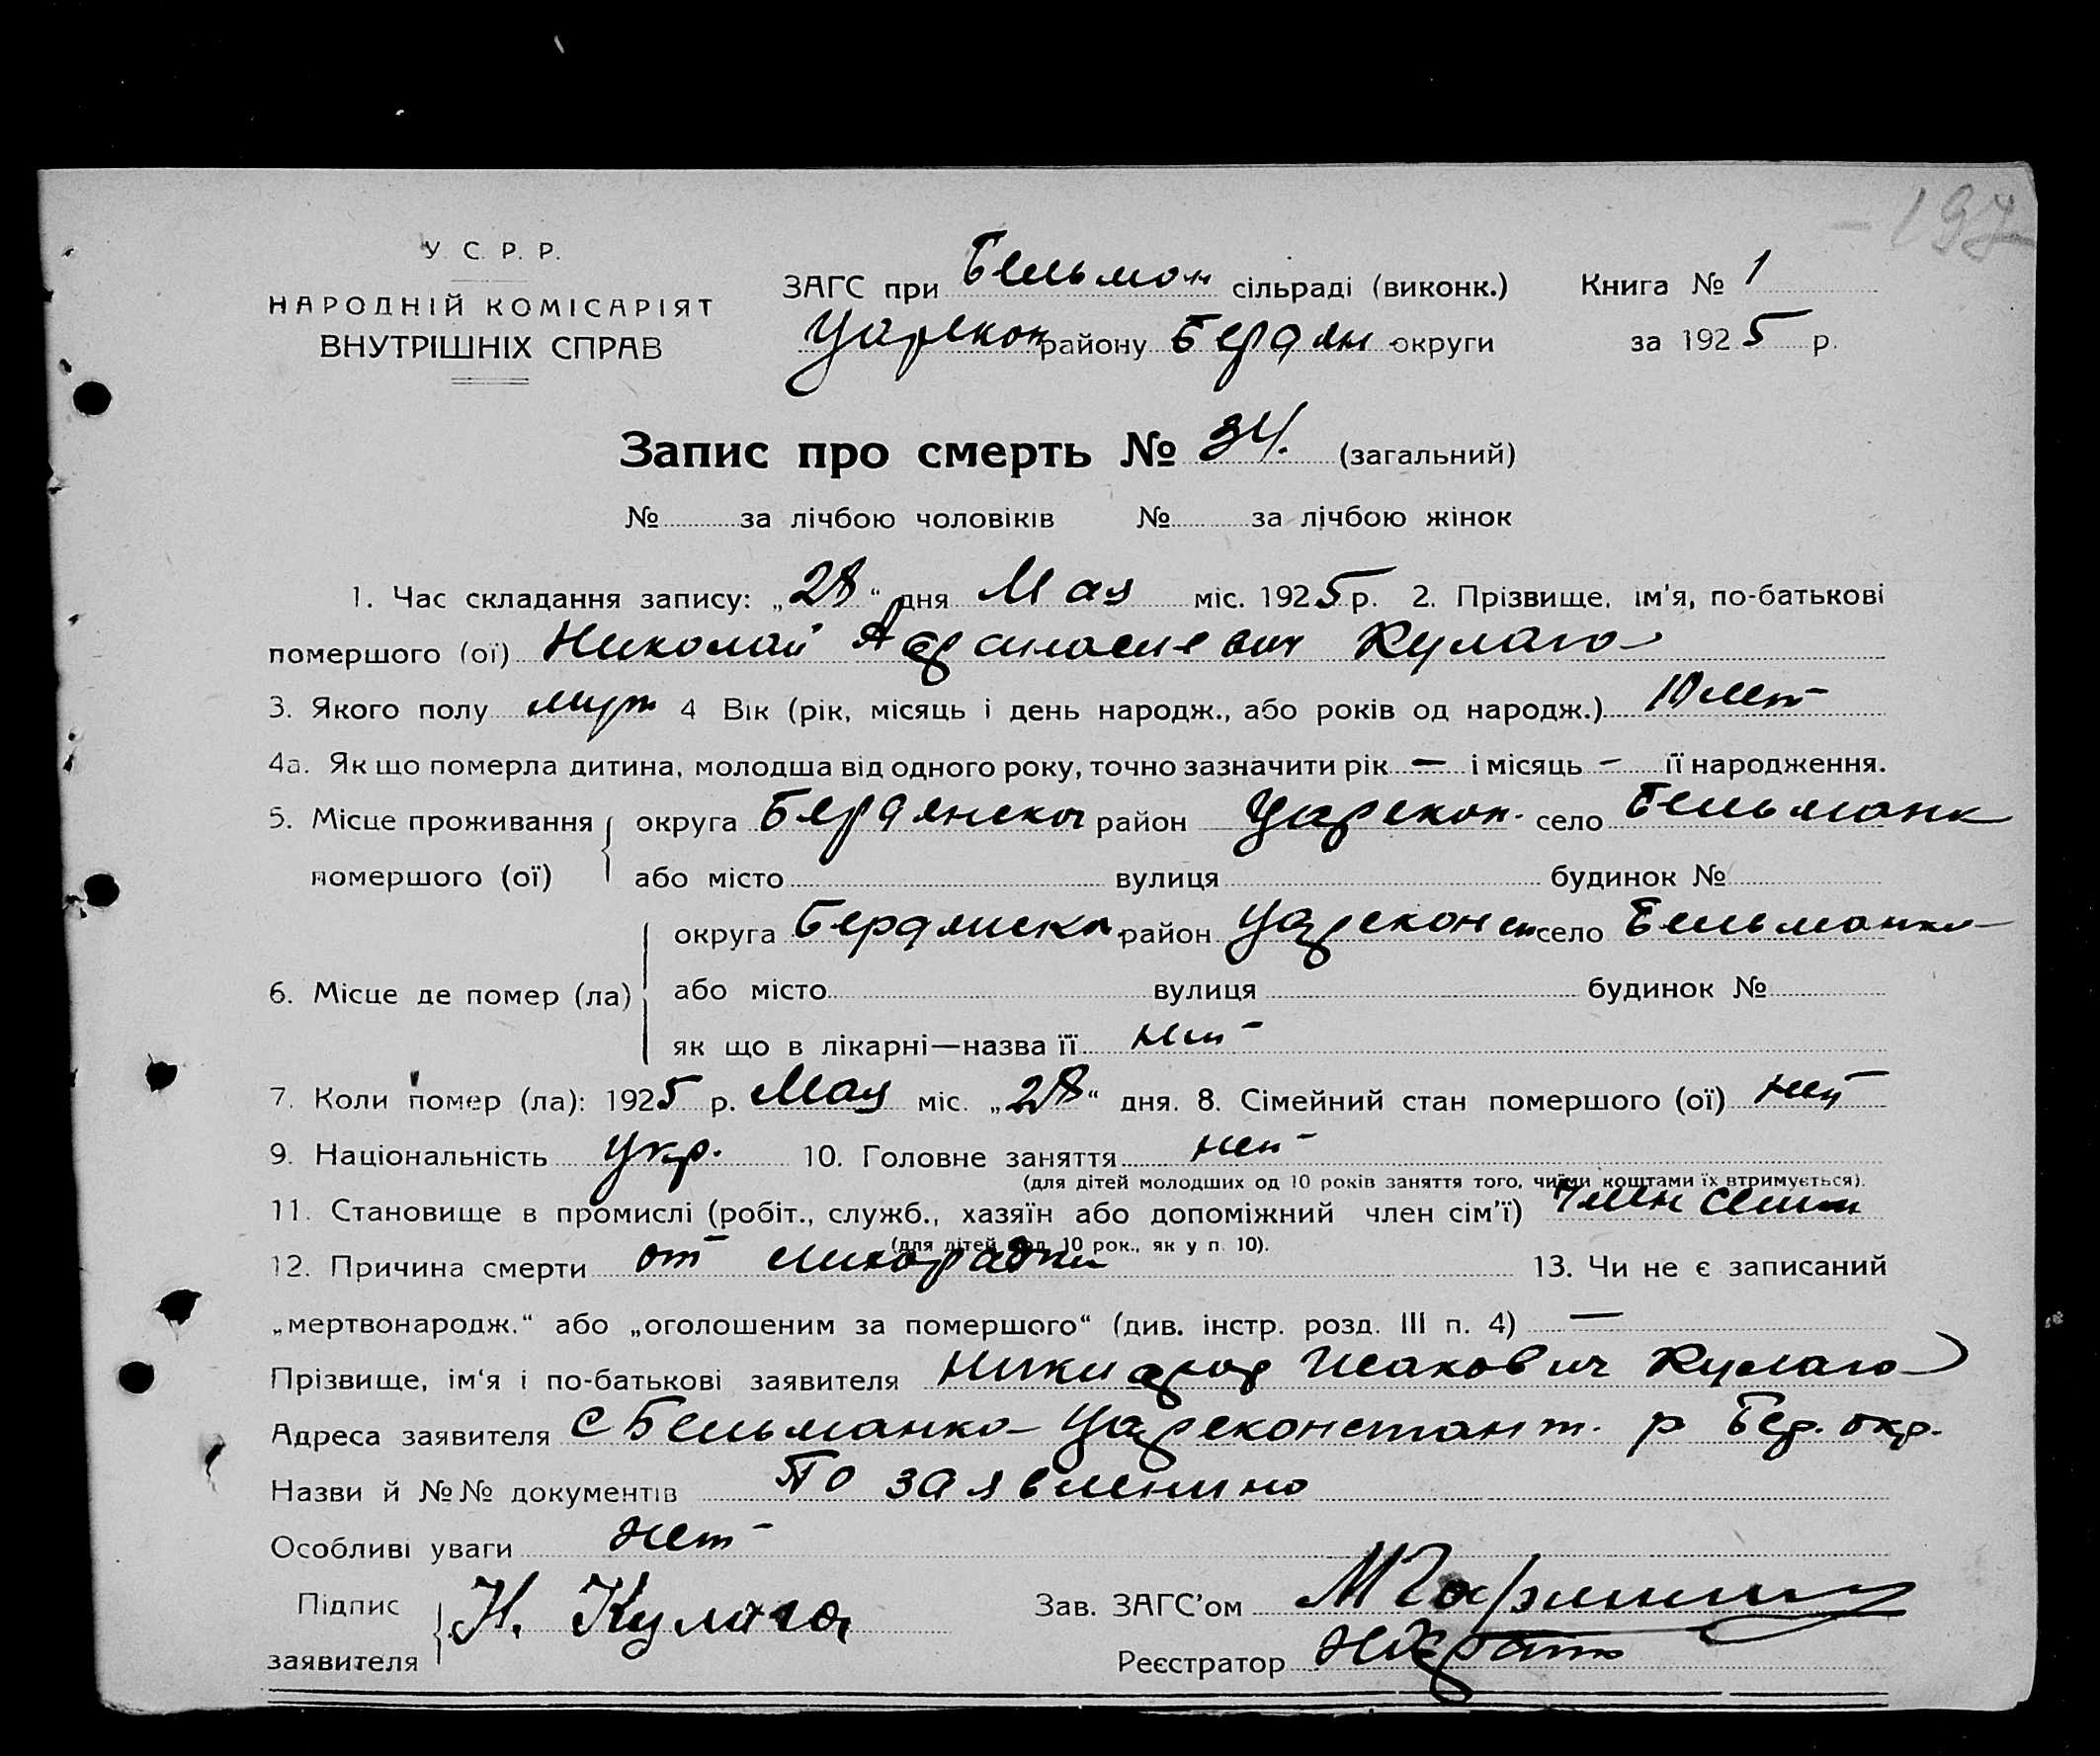 - 197
У. С. Р. Р.
НАРОДНІЙ КОМІСАРІЯТ
ВНУТРІШНІХ СПРАВ
ЗАГС при Бельман сільраді (виконк.) Книга № 1
Царекон району Бердян округи за 1925 р.
Запис про смерть № 34. (загальний)
№ за лічбою чоловіків № за лічбою жінок
1. Час складання запису: „28“ дня Мая міс. 1925 р. 2. Прізвище, ім'я, по-батькові
помершого (ої) Николай Афанасиевич Кулага
3. Якого полу муж 4 Вік (рік, місяць і день народж., або років од народж.) 10 лет
4а. Як що померла дитина, молодша від одного року, точно зазначити рік — і місяць – її народження.
5. Місце проживання помершого (ої) округа Бердянской район Царекон. село Бельманк
або місто вулиця будинок №
6. Місце де помер (ла) округа Бердянска район Цареконст село Бельманка
або місто вулиця будинок №
як що в лікарні—назва її нет
7. Коли помер (ла): 1925 р. Мая міс. „28“ дня. 8. Сімейний стан помершого (ої) нет
9. Національність укр. 10. Головне заняття нет
(для дітей молодших од 10 років заняття того, чиїми коштами їх втримується).
11. Становище в промислі (робіт., служб., хазяїн або допоміжний член сім'ї) Член семьи
(для дітей мол. 10 рок., як у п. 10).
12. Причина смерти от лихорадки 13. Чи не є записаний
„мертвонародж.“ або „оголошеним за помершого“ (див. інстр. розд. III п. 4) —
Прізвище, ім'я і по-батькові заявителя Никифор Исакович Кулага
Адреса заявителя с Бельманка Цареконстант. р Бер. окр.
Назви й №№ документів По заявлению
Особливі уваги нет
Підпис заявителя Н. Кулага Зав. ЗАГС'ом
Реєстратор